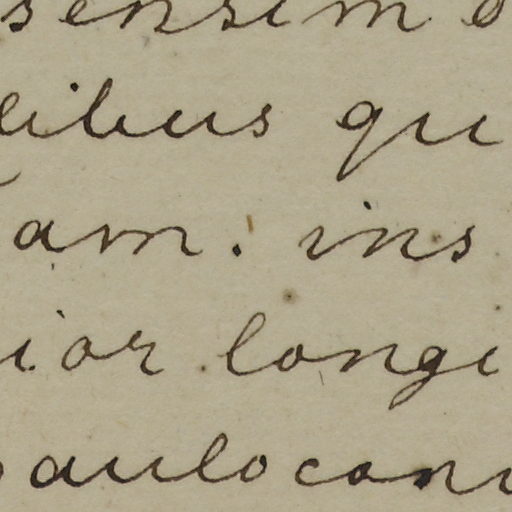 sensim
libus qu
am. ins
ior longi
paulo con